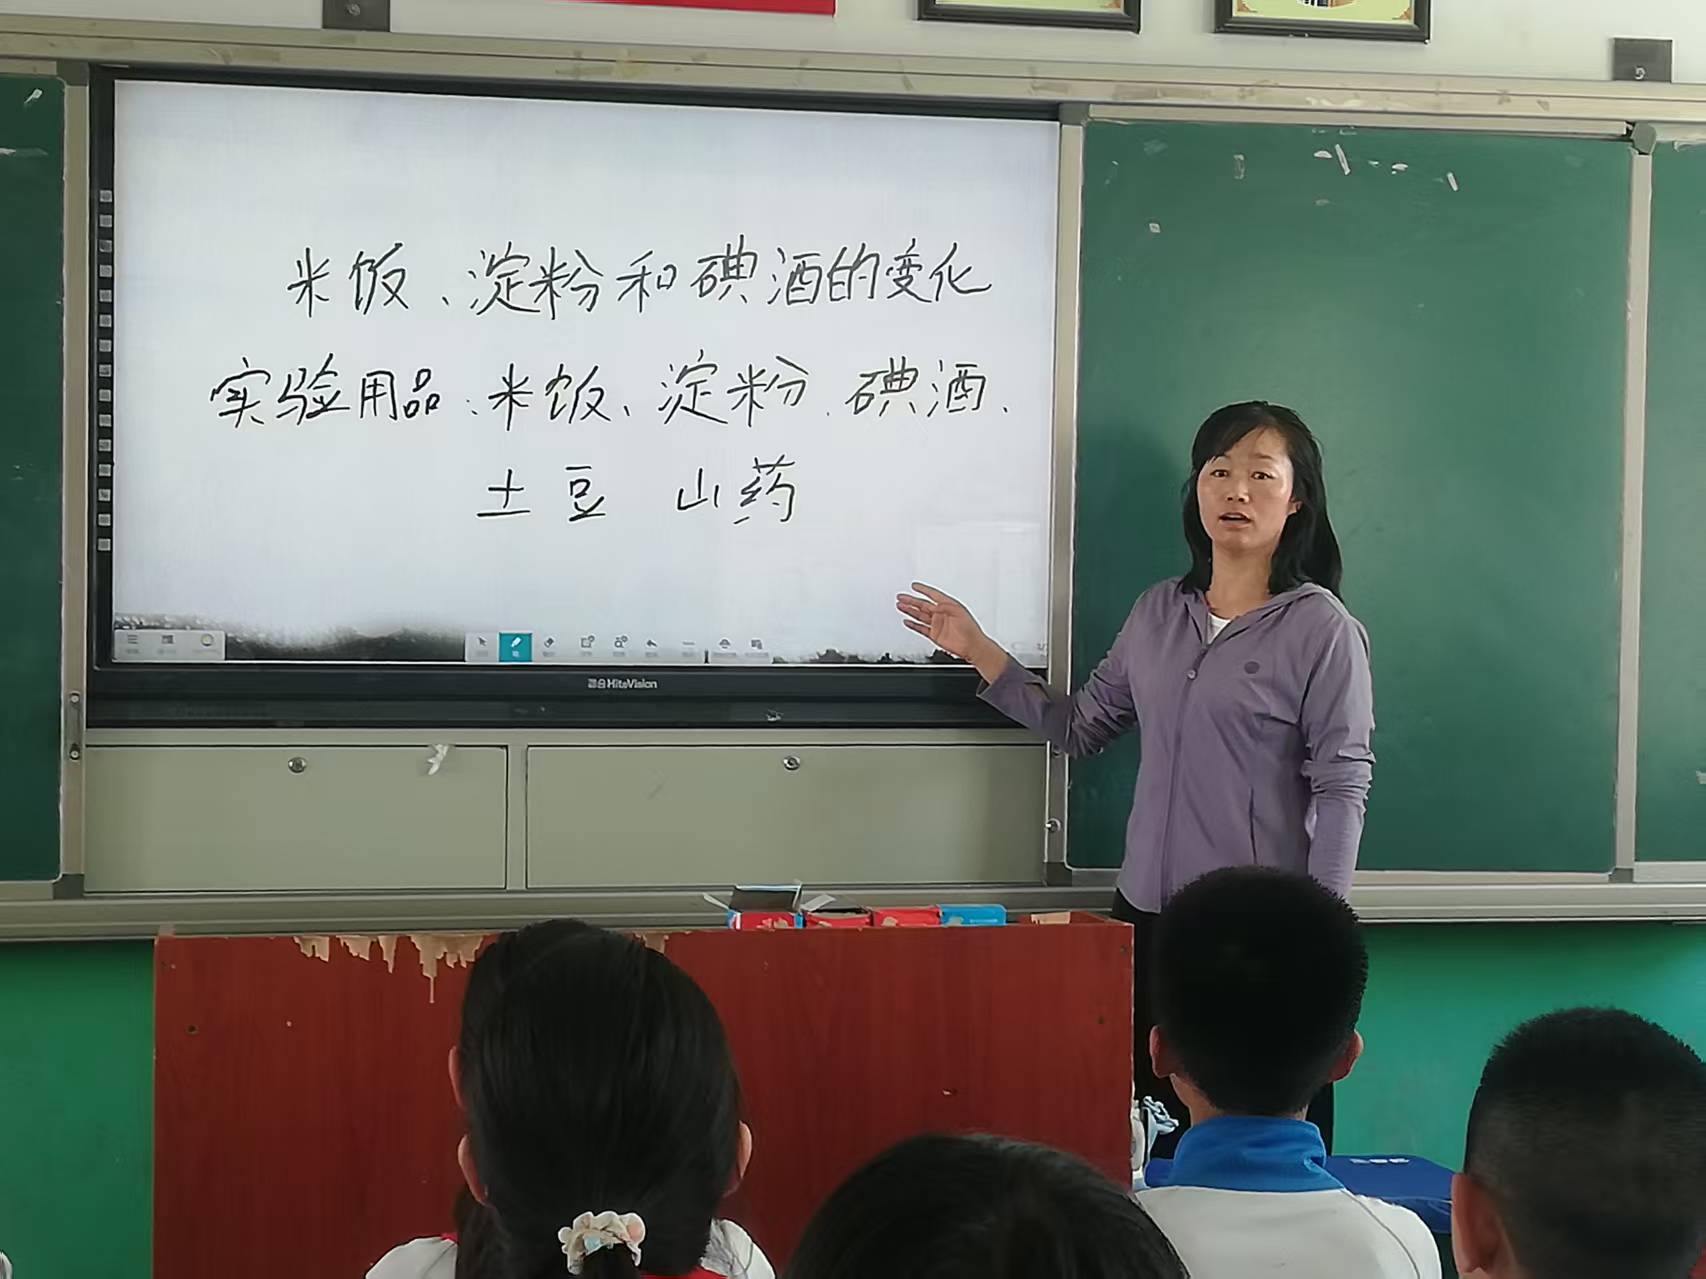 米饭、淀粉和碘酒的变化
实验用品：米饭、淀粉、碘酒、
土豆 山药
HiteVision